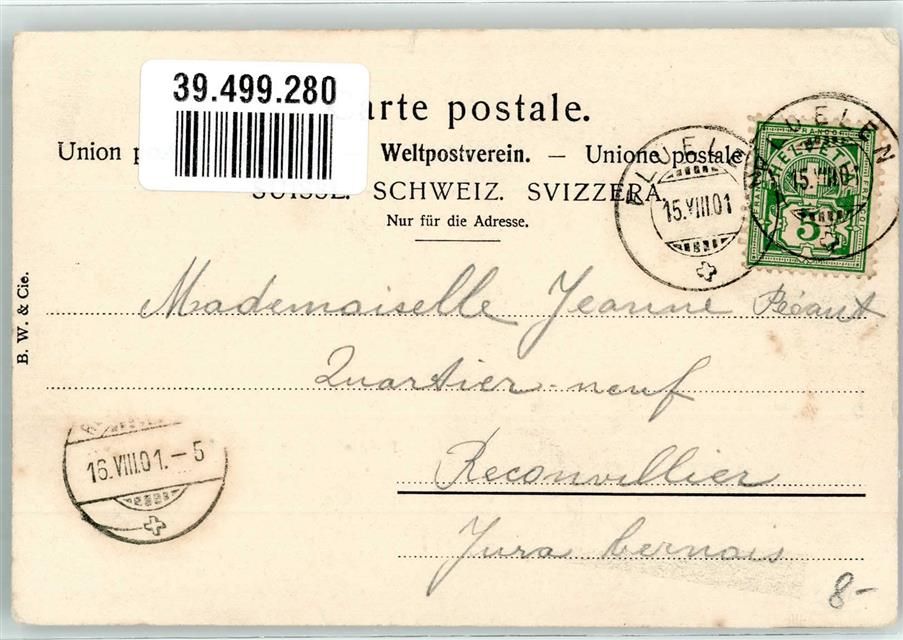 39.499.280
Carte postale.
Union p Weltpostverein. — Unione postale
SUISSE. SCHWEIZ. SVIZZERA.
Nur für die Adresse.
FLUELEN
15.VIII.01
FLUELEN
15.VIII.01
FRANCO
HELVETIA
5
B. W. & Cie.
Mademoiselle Jeanne
Quartier-neuf
Reconvillier
Jura bernois
16.VIII.01.-5
8-